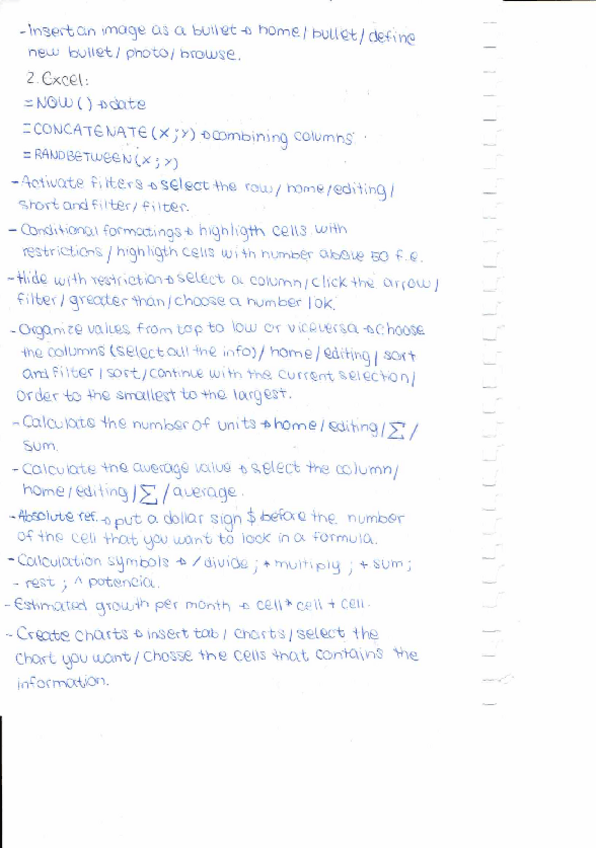 - Insert an image as a bullet → home / bullet / define
new bullet / photo / browse.
2. Excel:
=NOW() → date
=CONCATENATE(X;Y) → combining columns
=RANDBETWEEN(X;Y)
- Activate filters → select the row / home / editing /
short and filter / filter.
- Conditional formatings → highligth cells with
restrictions / highligth cells with number above 50 f.e.
- Hide with restriction → select a column / click the arrow /
filter / greater than / choose a number / ok.
- Organize values from top to low or viceversa → choose
the columns (select all the info) / home / editing / sort
and filter / sort / continue with the current selection /
order to the smallest to the largest.
- Calculate the number of units → home / editing / Σ /
sum.
- Calculate the average value → select the column /
home / editing / Σ / average.
- Absolute ref. → put a dollar sign $ before the number
of the cell that you want to lock in a formula.
- Calculation symbols → / divide ; * multiply ; + sum ;
- rest ; ^ potencia.
- Estimated growth per month → cell * cell + cell.
- Create charts → insert tab / charts / select the
chart you want / chosse the cells that contains the
information.